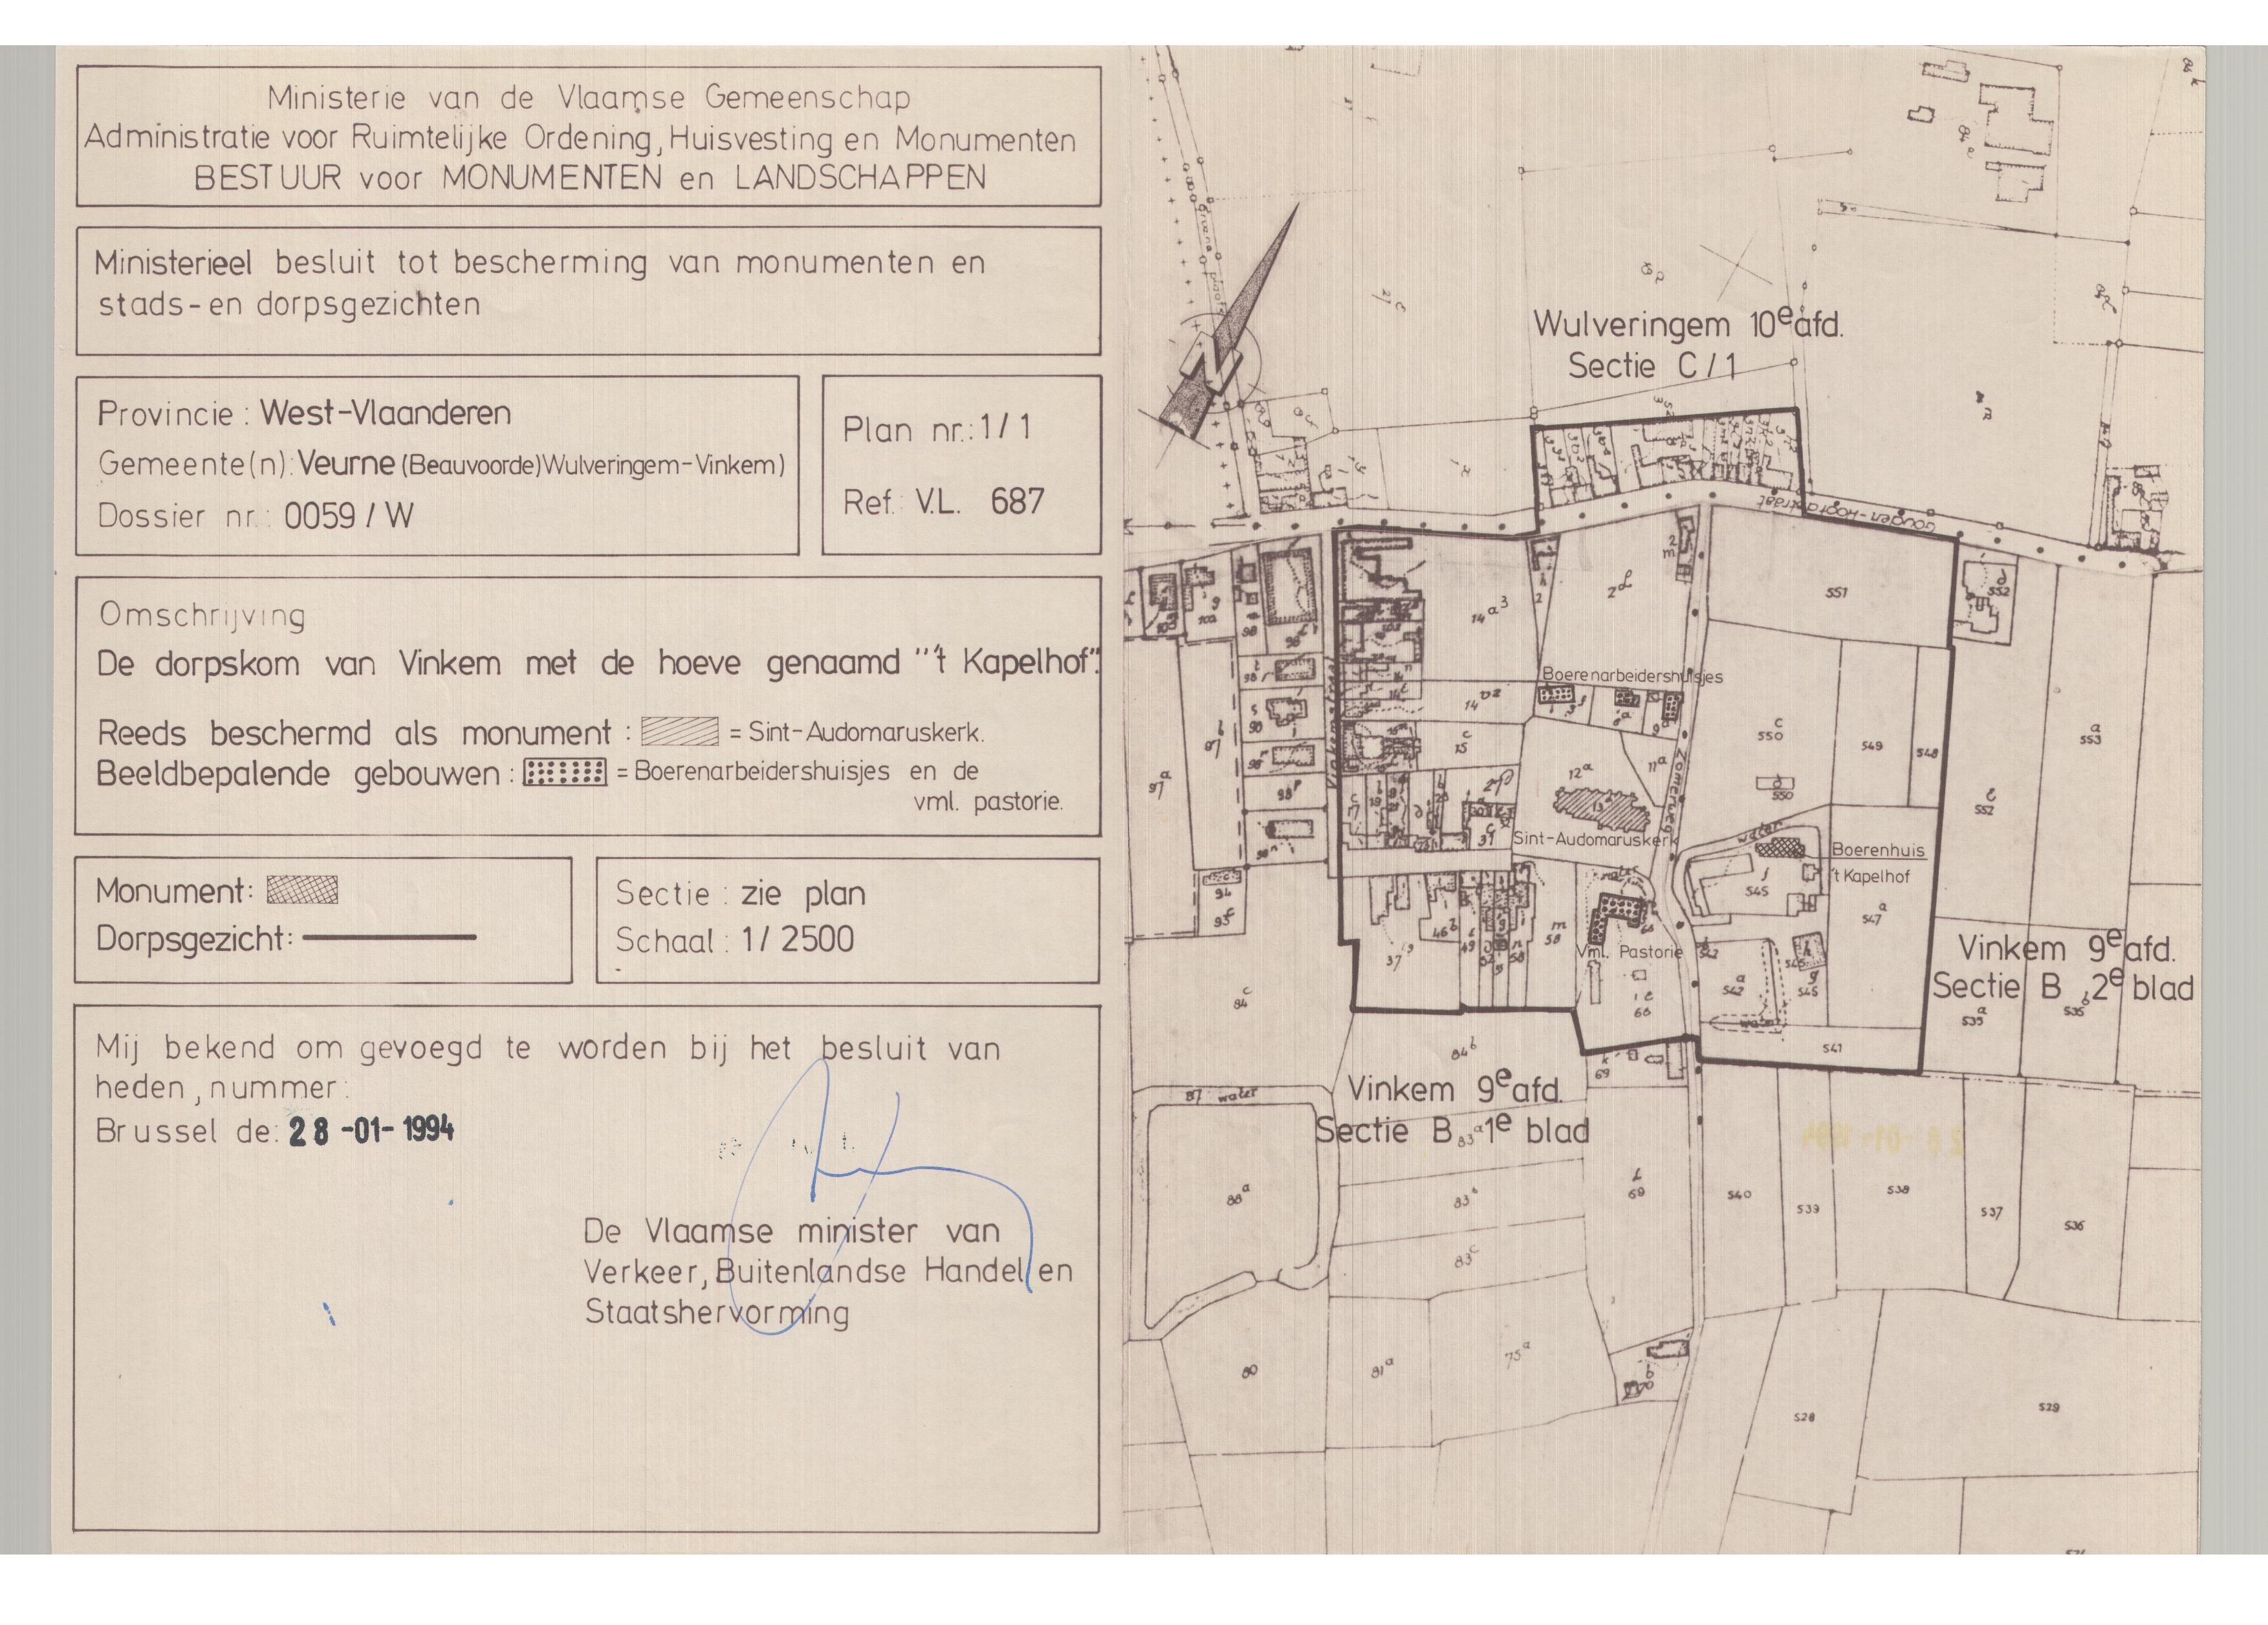 Ministerie van de Vlaamse Gemeenschap
Administratie voor Ruimtelijke Ordening, Huisvesting en Monumenten
BESTUUR voor MONUMENTEN en LANDSCHAPPEN
Ministerieel besluit tot bescherming van monumenten en
stads-en dorpsgezichten
Provincie: West-Vlaanderen
Gemeente(n): Veurne (Beauvoorde) Wulveringem-Vinkem)
Dossier nr.: 0059 / W
Plan nr.: 1/1
Ref: V.L. 687
Omschrijving
De dorpskom van Vinkem met de hoeve genaamd "'t Kapelhof".
Reeds beschermd als monument : = Sint-Audomaruskerk.
Beeldbepalende gebouwen : = Boerenarbeidershuisjes en de
vml. pastorie.
Monument:
Dorpsgezicht:
Sectie : zie plan
Schaal : 1/ 2500
Mij bekend om gevoegd te worden bij het besluit van
heden, nummer:
Brussel de: 28-01-1994
De Vlaamse minister van
Verkeer, Buitenlandse Handel en
Staatshervorming
Wulveringem 10e afd.
Sectie C/1
551
552
14a3
2
2m
Boerenarbeidershuisjes
14
15c
12a
11a
Zomerweg
550c
549
548
553a
552
550
97a
Sint-Audomaruskerk
water
Boerenhuis
't Kapelhof
545
547a
94
93
37
58m
Vml. Pastorie
66
542a
water
541
Vinkem 9e afd.
Sectie B 2e blad
535a
84c
84b
69
Vinkem 9e afd.
Sectie B 1e blad
83a
87 water
88a
83b
83c
69
540
539
538
537
536
80
81a
75a
528
529